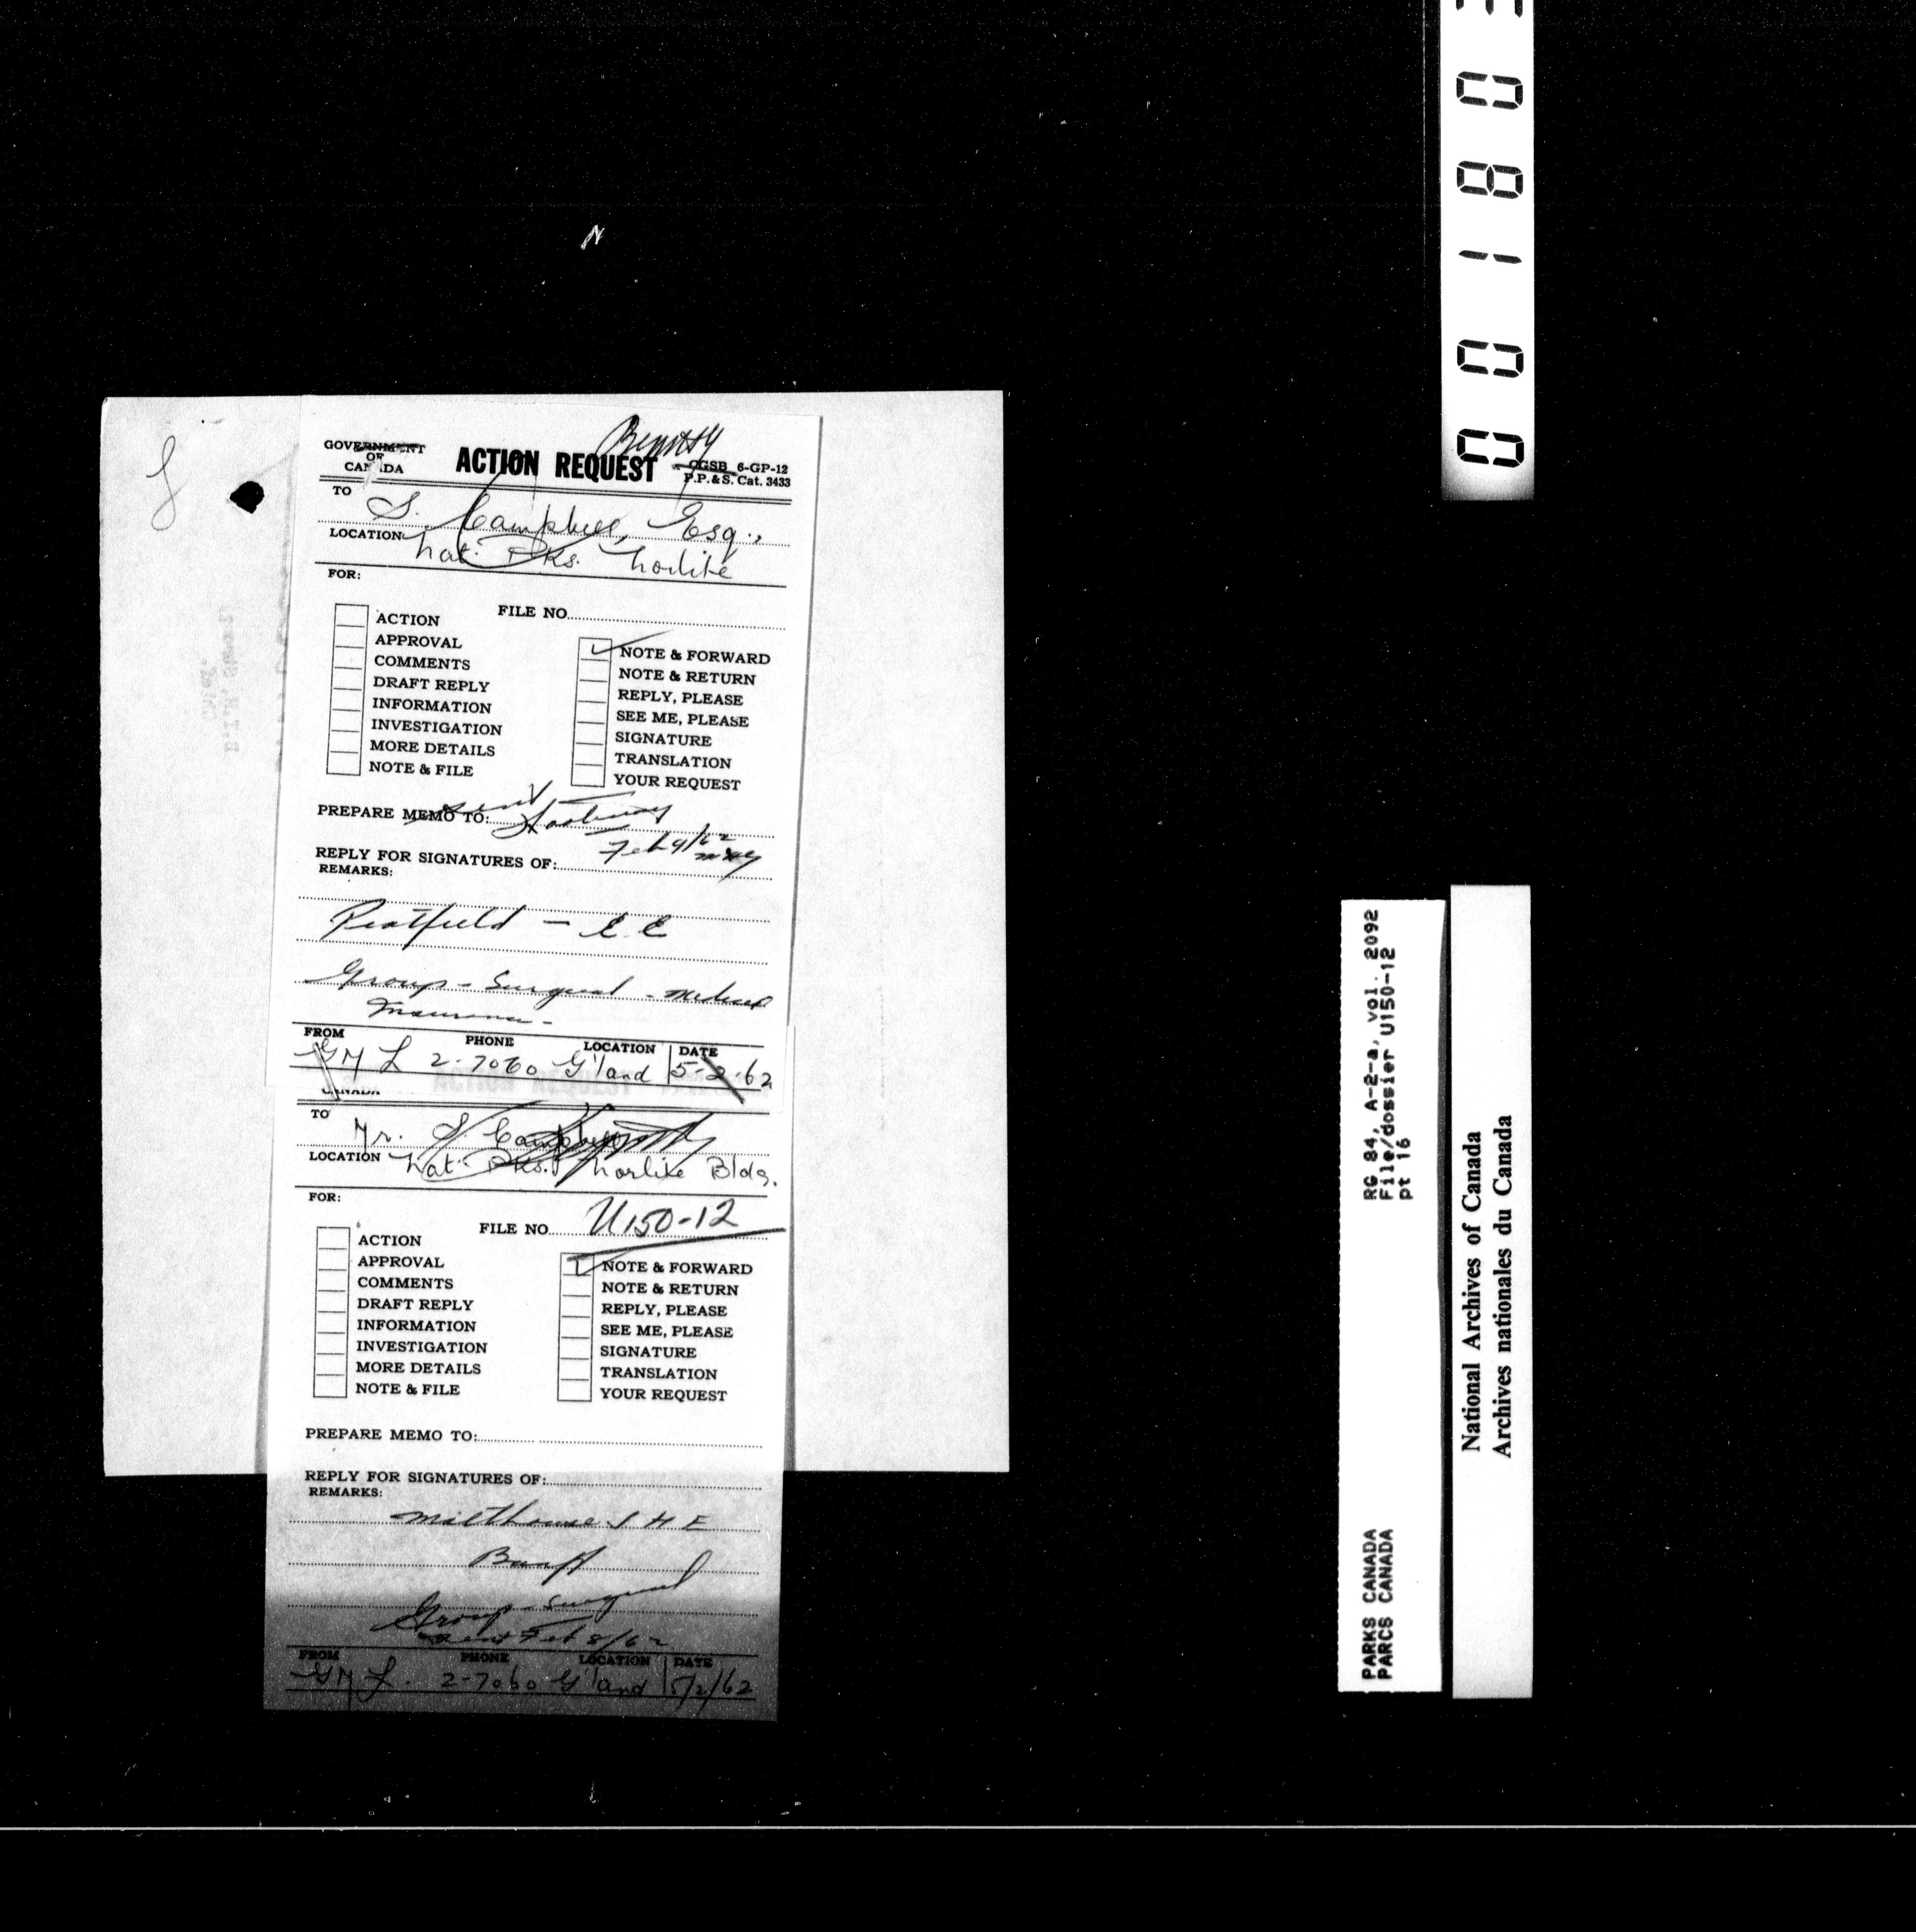 GOVERNMENT
OF
CANADA
ACTION REQUEST
CGSB 6-GP-12
P.P. & S. Cat. 3433
TO S. Campbell, Esq.,
LOCATION Nat. Pks. Norlite
FOR:
FILE NO.
ACTION
APPROVAL
COMMENTS
DRAFT REPLY
INFORMATION
INVESTIGATION
MORE DETAILS
NOTE & FILE
NOTE & FORWARD
NOTE & RETURN
REPLY, PLEASE
SEE ME, PLEASE
SIGNATURE
TRANSLATION
YOUR REQUEST
PREPARE MEMO TO:
sent
Feb 9/62
REPLY FOR SIGNATURES OF:
REMARKS:
Peatfield - E.E
Group - Surgical - Medical
Insurance -
FROM PHONE LOCATION DATE
GML 2-7060 G'land 5-2-62
CANADA
TO Mr. S. Campbell
LOCATION Nat. Pks. Norlite Bldg.
FOR:
FILE NO. U150-12
ACTION
APPROVAL
COMMENTS
DRAFT REPLY
INFORMATION
INVESTIGATION
MORE DETAILS
NOTE & FILE
NOTE & FORWARD
NOTE & RETURN
REPLY, PLEASE
SEE ME, PLEASE
SIGNATURE
TRANSLATION
YOUR REQUEST
PREPARE MEMO TO:
REPLY FOR SIGNATURES OF:
REMARKS:
Milthouse J H E
Banff
Group - Surgical
sent Feb 8/62
FROM PHONE LOCATION DATE
GML. 2-7060 G'land 5/2/62
B.I.M. Strong,
Chief.
00180
RG 84, A-2-a, vol. 2092
File/dossier U150-12
pt 16
PARKS CANADA
PARCS CANADA
National Archives of Canada
Archives nationales du Canada